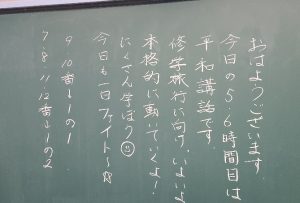 おはようございます。
今日の5・6時間目は
平和講話です。
修学旅行に向け、いよいよ
本格的に動いていくよ！
たくさん学ぼう☺
今日も一日ファイト～☆
9・10番→1の1
7・8・11・12番→1の2